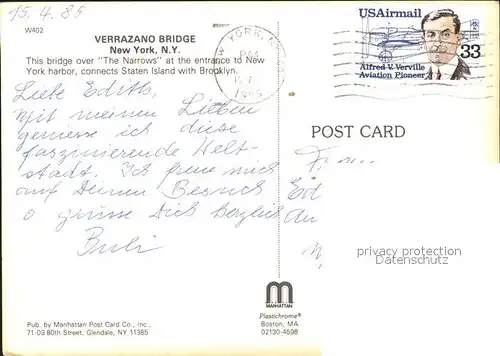 15.4.85
W402
VERRAZANO BRIDGE
New York, N.Y.
This bridge over "The Narrows" at the entrance to New
York harbor, connects Staten Island with Brooklyn.
USAirmail
33
Alfred V. Verville
Aviation Pioneer
NEW YORK, N.Y.
PM
1985
Liebe Edith,
mit meinen Lieben
geniesse ich diese
faszinierende Welt-
stadt. Ich freue mich
auf Deinen Besuch
u grüsse Dich herzlich
POST CARD
Ed
privacy protection
Datenschutz
MANHATTAN
Plastichrome®
Boston, MA
02130-4598
Pub. by Manhattan Post Card Co., Inc.,
71-03 80th Street, Glendale, NY 11385